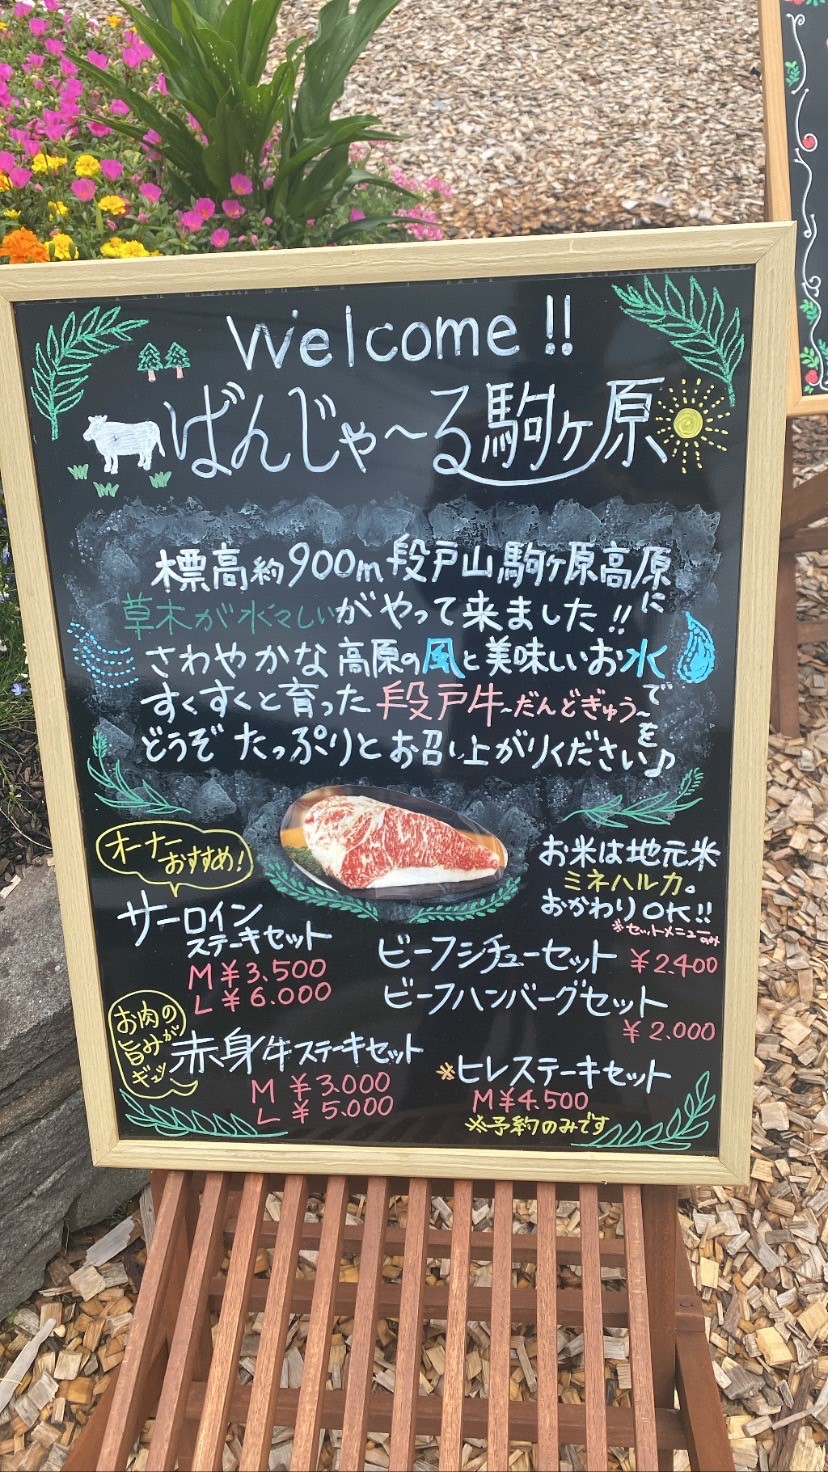 Welcome!!
ばんじゃ〜る駒ヶ原
標高約900m段戸山駒ヶ原高原に
草木が水々しいがやって来ました!!
さわやかな高原の風と美味しいお水で
すくすくと育った段戸牛~だんどぎゅう~を
どうぞたっぷりとお召し上がりください♪
オーナー
おすすめ!
サーロイン
ステーキセット
M ¥3.500
L ¥6.000
お肉の
旨みが
ギュッ
赤身牛ステーキセット
M ¥3.000
L ¥5.000
お米は地元米
ミネハルカ。
おかわりOK!!
※セットメニューのみ
ビーフシチューセット ¥2.400
ビーフハンバーグセット
¥2.000
※ヒレステーキセット
M¥4.500
※予約のみです